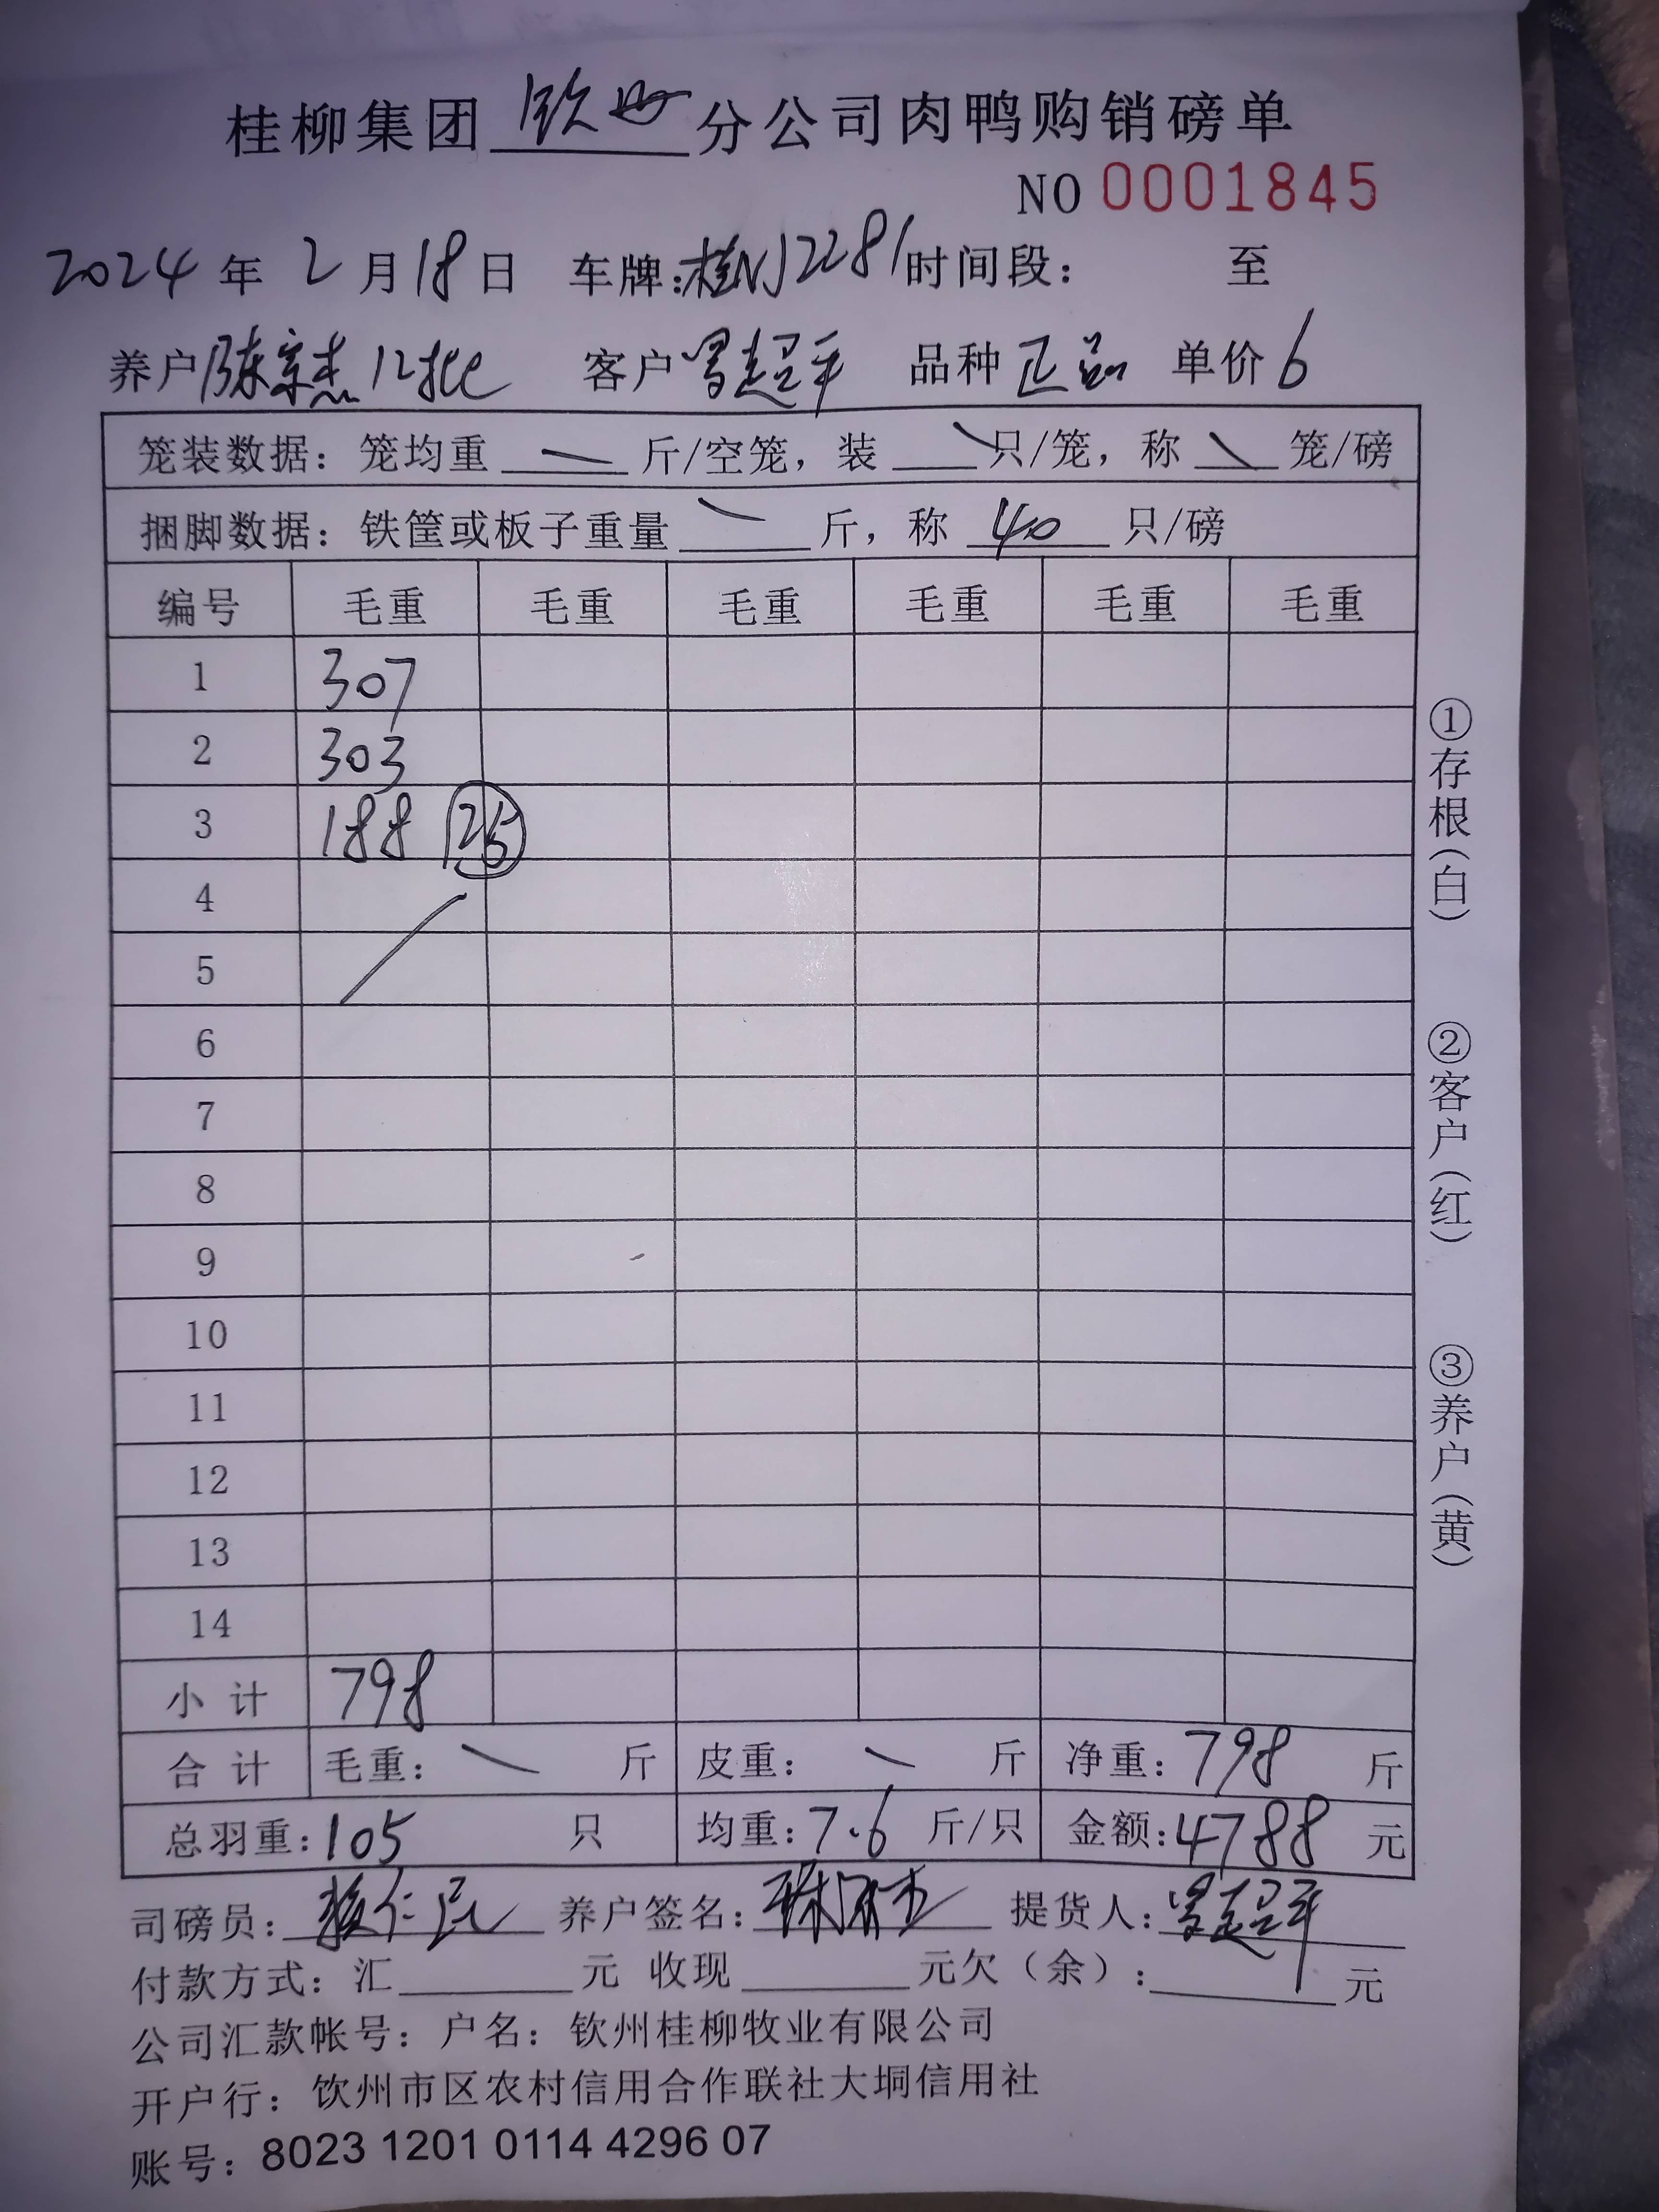 桂柳集团 钦州 分公司肉鸭购销磅单
NO 0001845
2024 年 2 月 18 日 车牌:桂NJ2281 时间段: 至
养户 陈宗杰 12批 客户 曾超平 品种 正品 单价 6
笼装数据: 笼均重 — 斤/空笼, 装 只/笼, 称 笼/磅
捆脚数据: 铁筐或板子重量 斤, 称 40 只/磅
编号 毛重 毛重 毛重 毛重 毛重 毛重
1 307
2 303
3 188 25
4
5
6
7
8
9
10
11
12
13
14
小计 798
合计 毛重: 斤 皮重: 斤 净重: 798 斤
总羽重: 105 只 均重: 7.6 斤/只 金额: 4788 元
司磅员: 仁民 养户签名: 提货人: 曾超平
付款方式: 汇 元 收现 元欠(余): 元
公司汇款帐号: 户名: 钦州桂柳牧业有限公司
开户行: 饮州市区农村信用合作联社大垌信用社
账号: 8023 1201 0114 4296 07
①存根(白)
②客户(红)
③养户(黄)